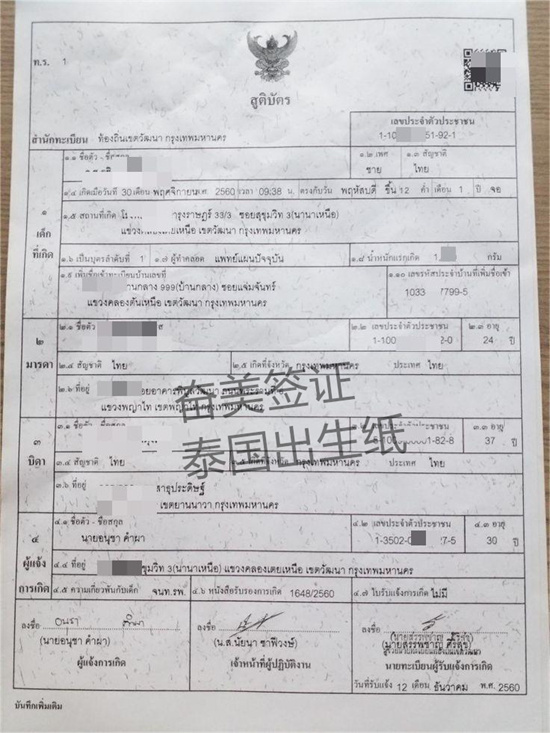 ท.ร. 1
สูติบัตร
เลขประจำตัวประชาชน
สำนักทะเบียน ท้องถิ่นเขตวัฒนา กรุงเทพมหานคร
1-10 51-92-1
๑ เด็กที่เกิด
๑.๑ ชื่อตัว - ชื่อสกุล
๑.๒ เพศ ชาย
๑.๓ สัญชาติ ไทย
๑.๔ เกิดเมื่อวันที่ 30 เดือน พฤศจิกายน พ.ศ. 2560 เวลา 09:38 น. ตรงกับวัน พฤหัสบดี ขึ้น 12 ค่ำ เดือน 1 ปี จอ
๑.๕ สถานที่เกิด ารุงราษฎร์ 33/3 ซอยสุขุมวิท 3(นานาเหนือ)
แขวงคลองเตยเหนือ เขตวัฒนา กรุงเทพมหานคร
๑.๖ เป็นบุตรลำดับที่ 1
๑.๗ ผู้ทำคลอด แพทย์แผนปัจจุบัน
๑.๘ น้ำหนักแรกเกิด กรัม
๑.๙ เพิ่มชื่อเข้าทะเบียนบ้านเลขที่
๑.๑๐ เลขรหัสประจำบ้านที่เพิ่มชื่อเข้า
านกลาง 999(บ้านกลาง) ซอยแจ่มจันทร์
1033 7799-5
แขวงคลองตันเหนือ เขตวัฒนา กรุงเทพมหานคร
๒ มารดา
๒.๑ ชื่อตัว
๒.๒ เลขประจำตัวประชาชน
1-100 2-0
๒.๓ อายุ
24 ปี
๒.๔ สัญชาติ ไทย
๒.๕ เกิดที่จังหวัด กรุงเทพมหานคร ประเทศ ไทย
๒.๖ ที่อยู่
แขวงพญาไท กรุงเทพมหานคร
奋美签证
泰国出生纸
๓ บิดา
๓.๑
เลขประจำตัวประชาชน
1-82-8
๓.๓ อายุ
37 ปี
๓.๔ สัญชาติ ไทย
กรุงเทพมหานคร ประเทศ ไทย
๓.๖ ที่อยู่ สาธุประดิษฐ์
เขตยานนาวา กรุงเทพมหานคร
๔ ผู้แจ้งการเกิด
๔.๑ ชื่อตัว - ชื่อสกุล
นายอนุชา คำผา
๔.๒ เลขประจำตัวประชาชน
1-3502- 27-5
๔.๓ อายุ
30 ปี
๔.๔ ที่อยู่ ขุมวิท 3(นานาเหนือ) แขวงคลองเตยเหนือ เขตวัฒนา กรุงเทพมหานคร
๔.๕ ความเกี่ยวพันกับเด็ก จนท.รพ.
๔.๖ หนังสือรับรองการเกิด 1648/2560
๔.๗ ใบรับแจ้งการเกิด ไม่มี
ลงชื่อ
(นายอนุชา คำผา)
ผู้แจ้งการเกิด
ลงชื่อ
(น.ส.นัยนา ชาฟีวงษ์)
เจ้าหน้าที่ผู้ปฏิบัติงาน
ลงชื่อ
นายทะเบียนผู้รับแจ้งการเกิด
วันที่รับแจ้ง 12 เดือน ธันวาคม พ.ศ. 2560
บันทึกเพิ่มเติม